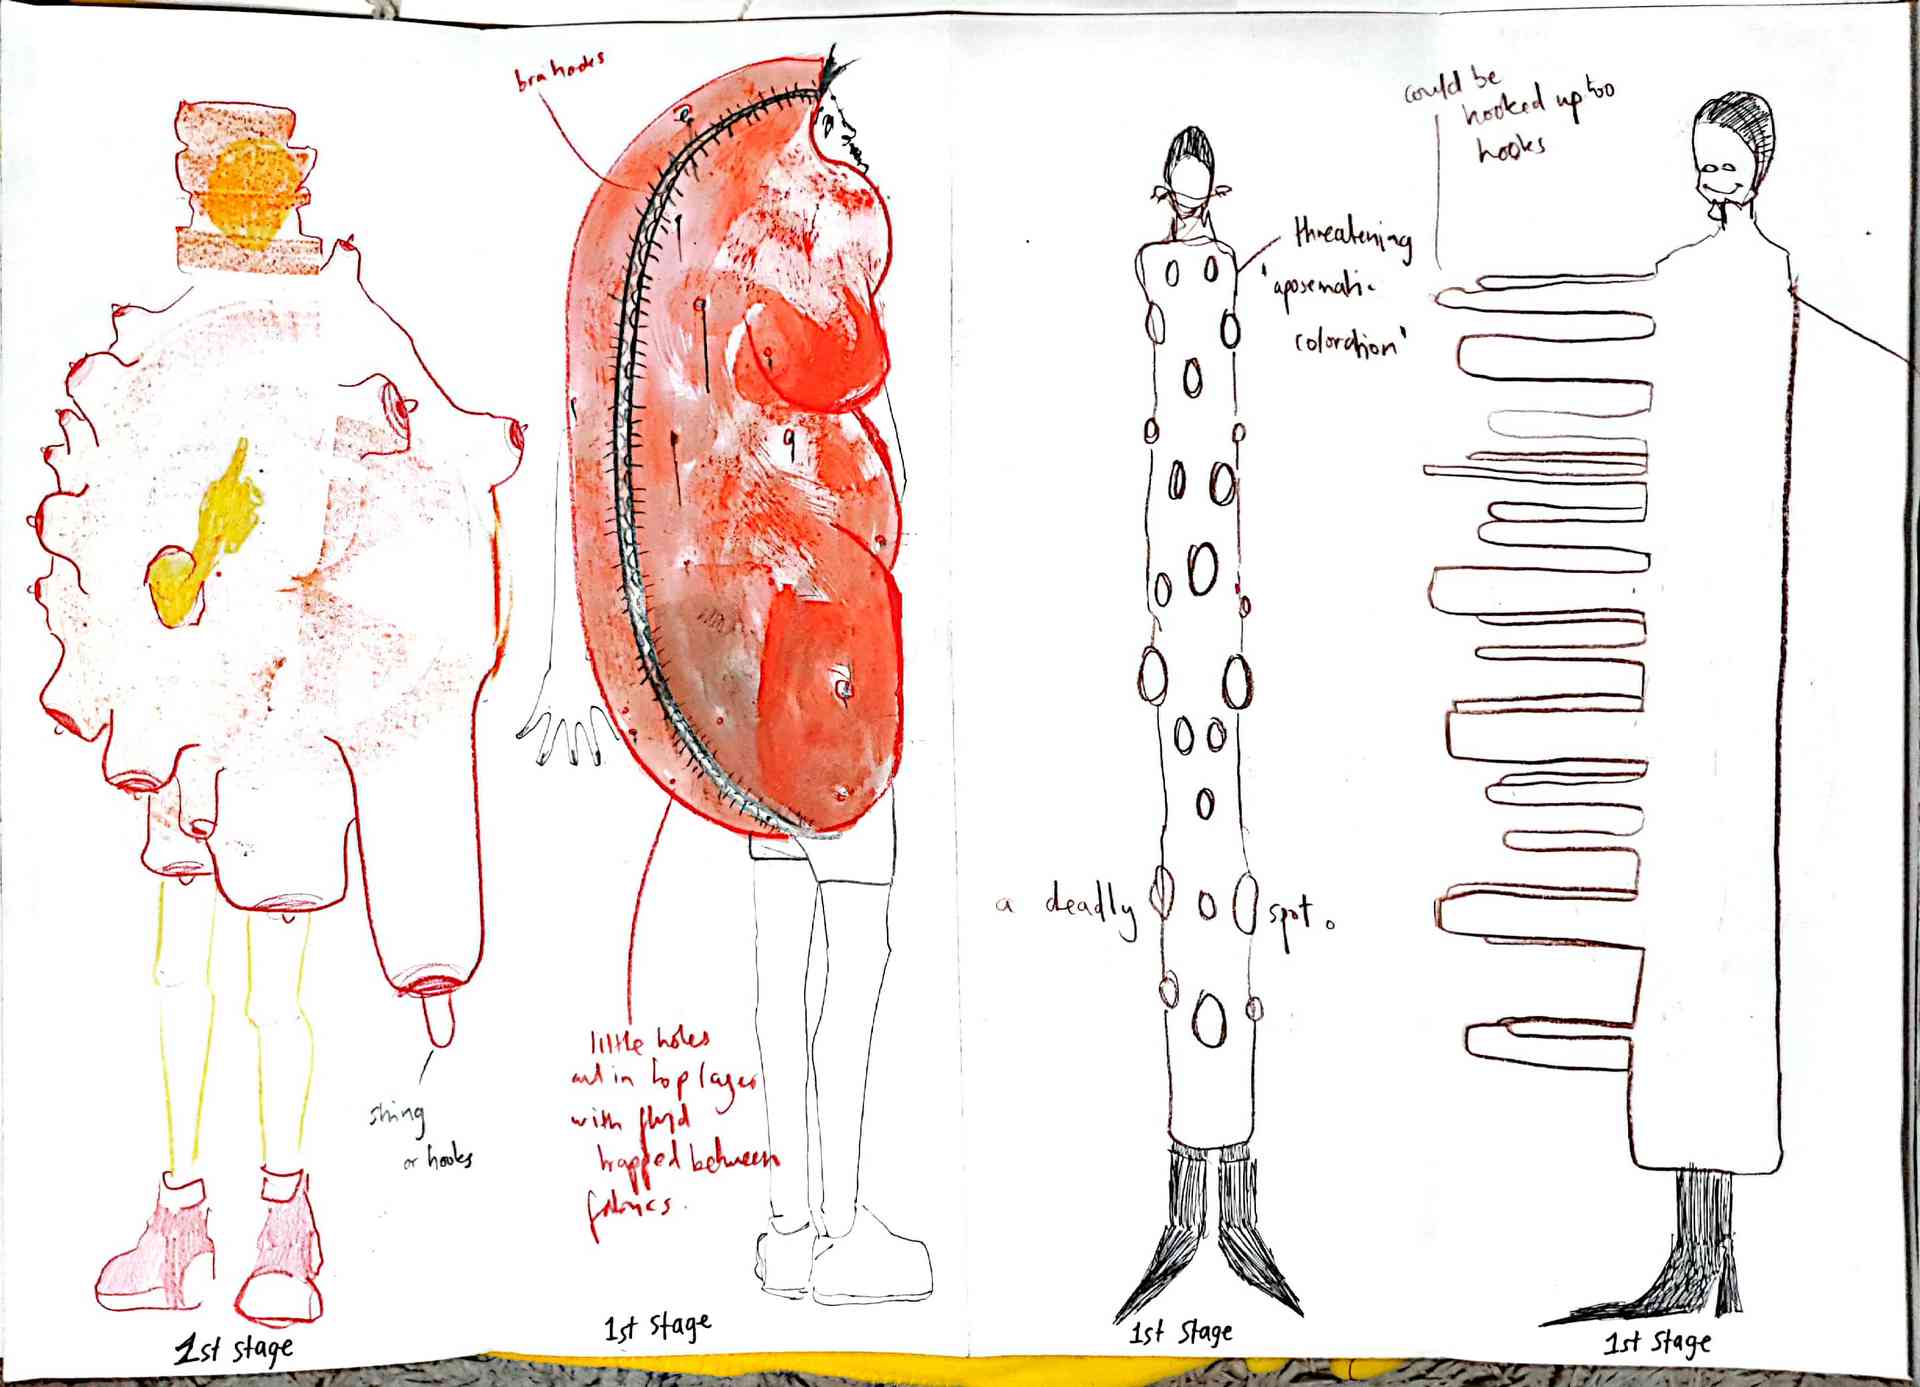 bra hooks
could be
hooked up too
hooks
threatening
'aposematic
coloration'
a deadly spot.
string
or hooks
little holes
cut in top layer
with fluid
trapped between
fabrics.
1st stage
1st stage
1st stage
1st stage